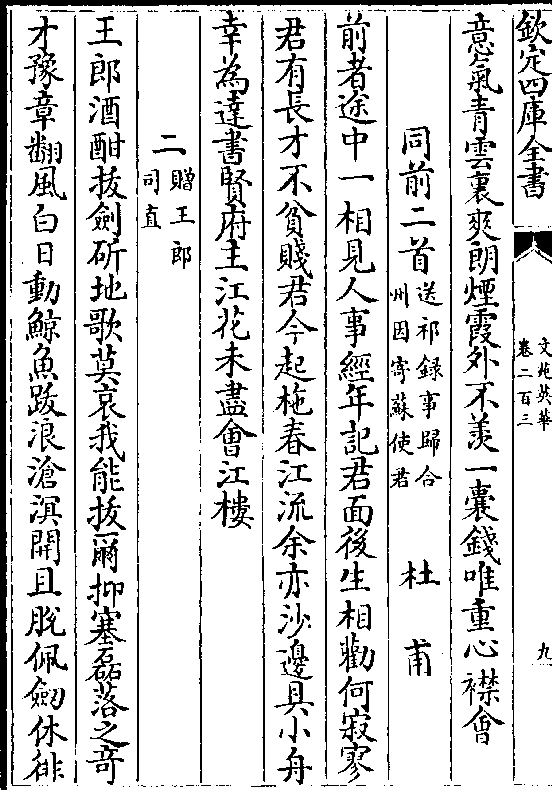 欽定四庫全書
文苑英華
卷二百三
九
意氣青雲裏爽朗煙霞外不羨一囊錢唯重心襟會
同前二首送祁録事歸合州因寄蘇使君 杜甫
前者途中一相見人事經年記君面後生相勸何寂寥
君有長才不貧賤君今起柂春江流余亦沙邊具小舟
幸為達書賢府主江花未盡會江樓
二贈王郎司直
王郎酒酣拔劍斫地歌莫哀我能拔爾抑塞磊落之竒
才豫章翻風白日動鯨魚跋浪滄溟開且脫佩劒休徘